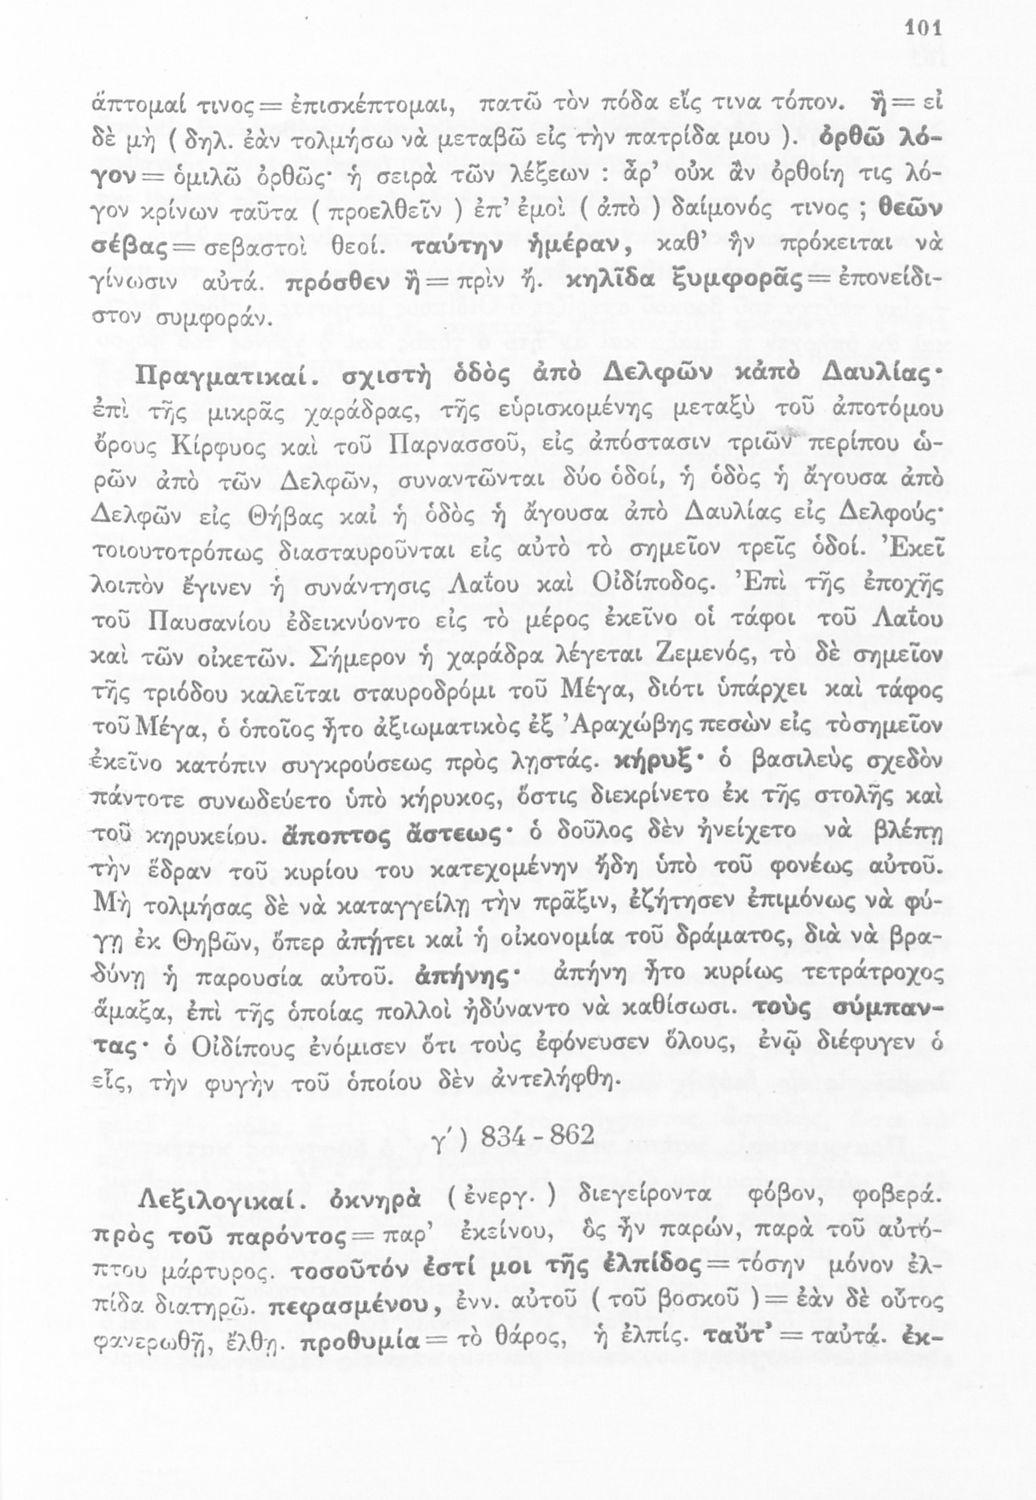 101
ἅπτομαί τινος = ἐπισκέπτομαι, πατῶ τὸν πόδα εἴς τινα τόπον. ἢ = εἰ
δὲ μὴ ( δηλ. ἐὰν τολμήσω νὰ μεταβῶ εἰς τὴν πατρίδα μου ). ὀρθῶ λό-
γον = ὁμιλῶ ὀρθῶς· ἡ σειρὰ τῶν λέξεων : ἆρ’ οὐκ ἂν ὀρθοίη τις λό-
γον κρίνων ταῦτα ( προελθεῖν ) ἐπ’ ἐμοὶ ( ἀπὸ ) δαίμονός τινος ; θεῶν
σέβας = σεβαστοὶ θεοί. ταύτην ἡμέραν, καθ’ ἣν πρόκειται νὰ
γίνωσιν αὐτά. πρόσθεν ἢ = πρὶν ἤ. κηλῖδα ξυμφορᾶς = ἐπονείδι-
στον συμφοράν.
Πραγματικαί. σχιστὴ ὁδὸς ἀπὸ Δελφῶν κἀπὸ Δαυλίας·
ἐπὶ τῆς μικρᾶς χαράδρας, τῆς εὑρισκομένης μεταξὺ τοῦ ἀποτόμου
ὄρους Κίρφυος καὶ τοῦ Παρνασσοῦ, εἰς ἀπόστασιν τριῶν περίπου ὡ-
ρῶν ἀπὸ τῶν Δελφῶν, συναντῶνται δύο ὁδοί, ἡ ὁδὸς ἡ ἄγουσα ἀπὸ
Δελφῶν εἰς Θήβας καὶ ἡ ὁδὸς ἡ ἄγουσα ἀπὸ Δαυλίας εἰς Δελφούς·
τοιουτοτρόπως διασταυροῦνται εἰς αὐτὸ τὸ σημεῖον τρεῖς ὁδοί. Ἐκεῖ
λοιπὸν ἔγινεν ἡ συνάντησις Λαΐου καὶ Οἰδίποδος. Ἐπὶ τῆς ἐποχῆς
τοῦ Παυσανίου ἐδεικνύοντο εἰς τὸ μέρος ἐκεῖνο οἱ τάφοι τοῦ Λαΐου
καὶ τῶν οἰκετῶν. Σήμερον ἡ χαράδρα λέγεται Ζεμενός, τὸ δὲ σημεῖον
τῆς τριόδου καλεῖται σταυροδρόμι τοῦ Μέγα, διότι ὑπάρχει καὶ τάφος
τοῦ Μέγα, ὁ ὁποῖος ἦτο ἀξιωματικὸς ἐξ Ἀραχώβης πεσὼν εἰς τὸσημεῖον
ἐκεῖνο κατόπιν συγκρούσεως πρὸς λῃστάς. κήρυξ· ὁ βασιλεὺς σχεδὸν
πάντοτε συνωδεύετο ὑπὸ κήρυκος, ὅστις διεκρίνετο ἐκ τῆς στολῆς καὶ
τοῦ κηρυκείου. ἄποπτος ἄστεως· ὁ δοῦλος δὲν ἠνείχετο νὰ βλέπῃ
τὴν ἕδραν τοῦ κυρίου του κατεχομένην ἤδη ὑπὸ τοῦ φονέως αὐτοῦ.
Μὴ τολμήσας δὲ νὰ καταγγείλῃ τὴν πρᾶξιν, ἐζήτησεν ἐπιμόνως νὰ φύ-
γῃ ἐκ Θηβῶν, ὅπερ ἀπῄτει καὶ ἡ οἰκονομία τοῦ δράματος, διὰ νὰ βρα-
δύνῃ ἡ παρουσία αὐτοῦ. ἀπήνης· ἀπήνη ἦτο κυρίως τετράτροχος
ἅμαξα, ἐπὶ τῆς ὁποίας πολλοὶ ἠδύναντο νὰ καθίσωσι. τοὺς σύμπαν-
τας· ὁ Οἰδίπους ἐνόμισεν ὅτι τοὺς ἐφόνευσεν ὅλους, ἐνῷ διέφυγεν ὁ
εἷς, τὴν φυγὴν τοῦ ὁποίου δὲν ἀντελήφθη.
γ΄) 834 - 862
Λεξιλογικαί. ὀκνηρὰ ( ἐνεργ. ) διεγείροντα φόβον, φοβερά.
πρὸς τοῦ παρόντος = παρ’ ἐκείνου, ὃς ἦν παρών, παρὰ τοῦ αὐτό-
πτου μάρτυρος. τοσοῦτόν ἐστί μοι τῆς ἐλπίδος = τόσην μόνον ἐλ-
πίδα διατηρῶ. πεφασμένου, ἐνν. αὐτοῦ ( τοῦ βοσκοῦ ) = ἐὰν δὲ οὗτος
φανερωθῇ, ἔλθῃ. προθυμία = τὸ θάρος, ἡ ἐλπίς. ταὔτ’ = ταὐτά. ἐκ-